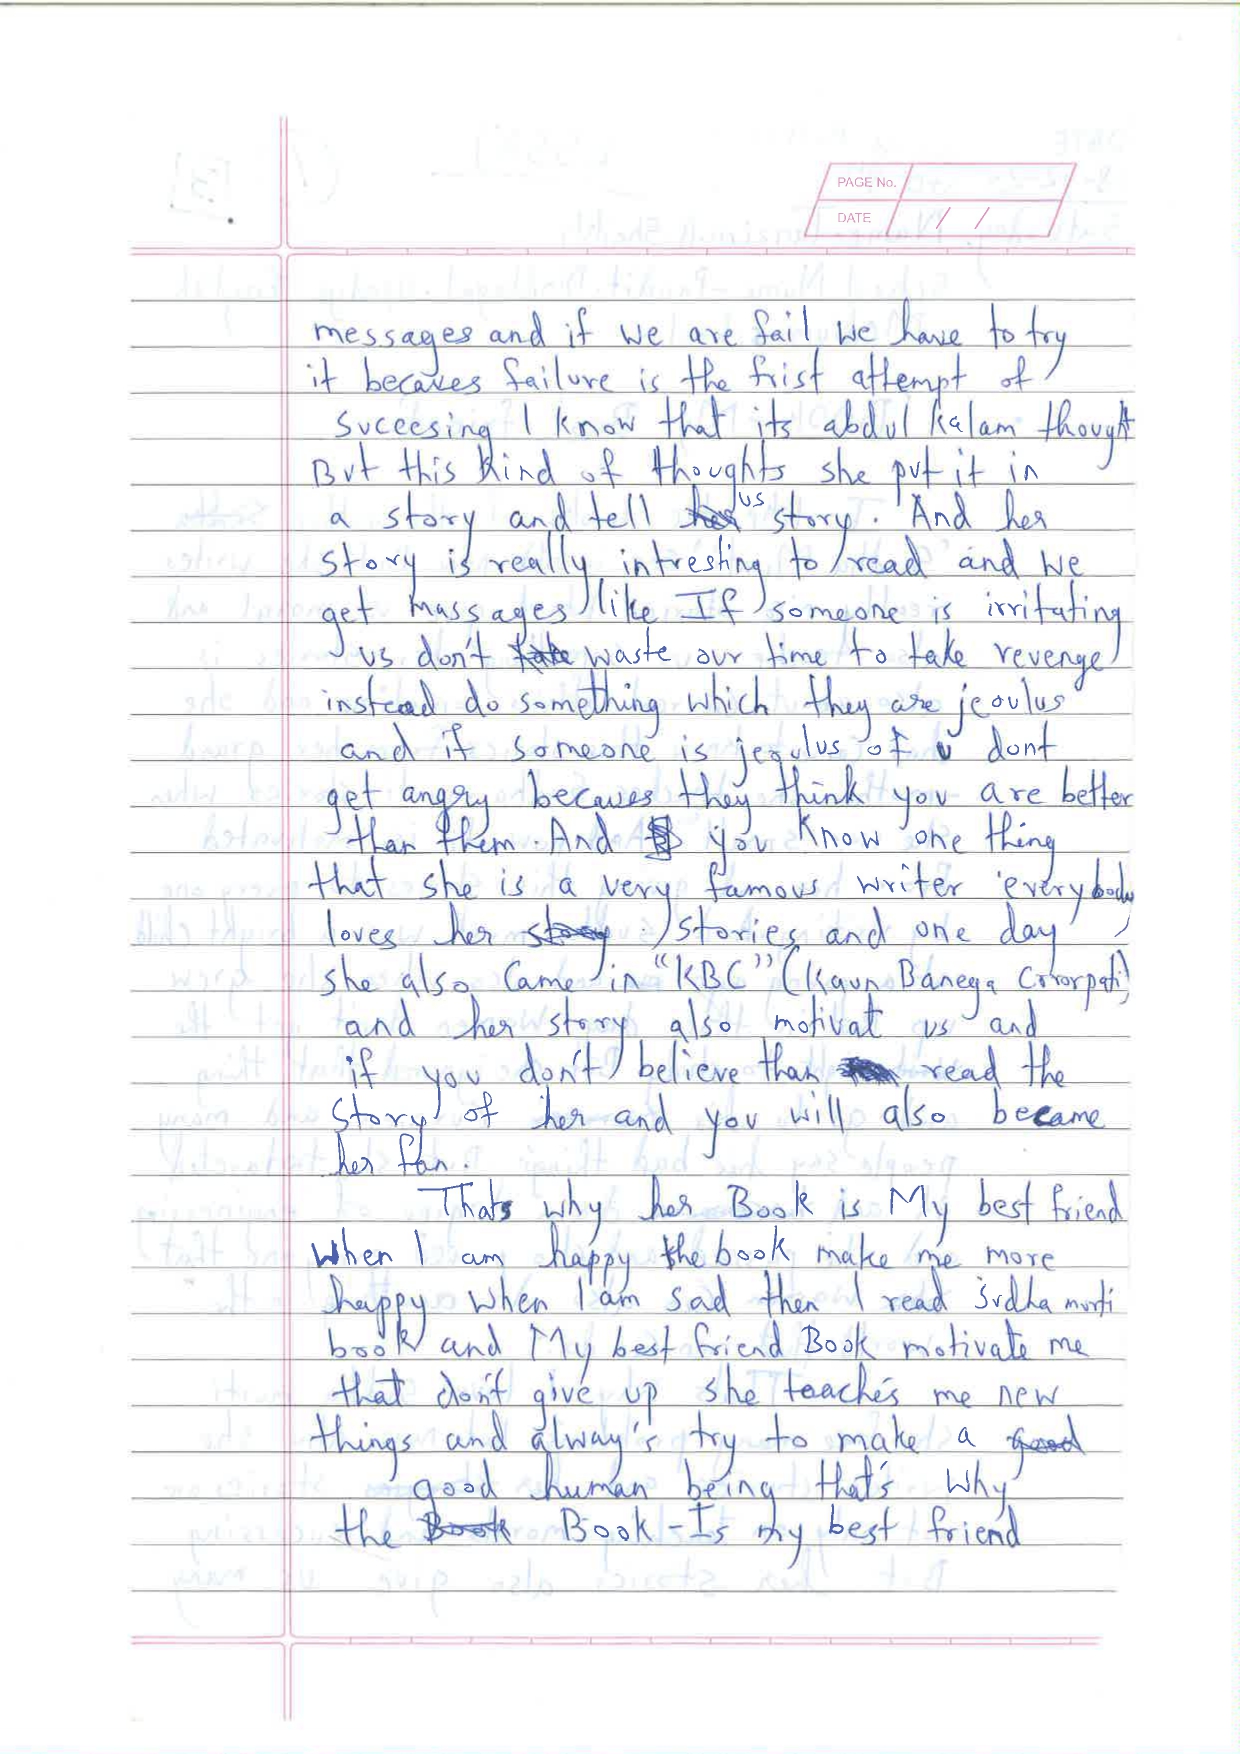 PAGE No.
DATE / /
messages and if we are fail we have to try
it becaues failure is the frist attempt of
succeesing I know that its abdul kalam thought
But this kind of thoughts she put it in
a story and tell us story. And her
story is really intresting to read and we
get massages like If someone is irritating
us don't waste our time to take revenge
instead do something which they are jeoulus
and if someone is jeoulus of u dont
get angry becaues they think you are better
than them. And you know one thing
that she is a very famous writer everybody
loves her stories and one day
she also came in "KBC" (Kaun Banega Crorpati)
and her story also motivat us and
if you don't believe than read the
story of her and you will also became
her fan.
Thats why her Book is My best friend
when I am happy the book make me more
happy when I am sad then I read sudha murti
book and My best friend Book motivate me
that don't give up she teache's me new
things and alway's try to make a
good human being that's why
the Book - Is my best friend